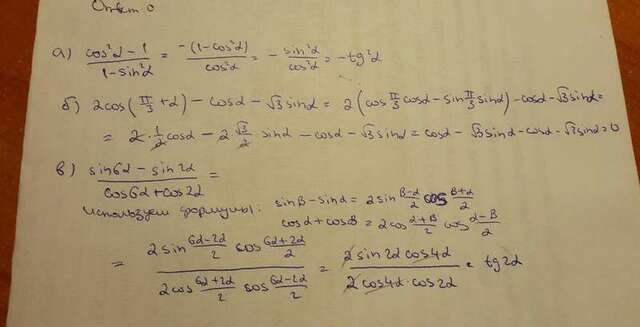 Ответ: 0
а) (cos²α - 1)/(1 - sin²α) = -(1 - cos²α)/cos²α = - sin²α/cos²α = -tg²α
б) 2cos(π/3 + α) - cosα - √3 sinα = 2(cos π/3 cosα - sin π/3 sinα) - cosα - √3 sinα =
= 2 · 1/2 cosα - 2 √3/2 sinα - cosα - √3 sinα = cosα - √3 sinα - cosα - √3 sinα = 0
в) (sin6α - sin2α)/(cos6α + cos2α) =
используем формулы: sinβ - sinα = 2sin (β-α)/2 cos (β+α)/2
cosα + cosβ = 2cos (α+β)/2 cos (α-β)/2
= (2sin (6α-2α)/2 cos (6α+2α)/2)/(2cos (6α+2α)/2 cos (6α-2α)/2) = (2 sin2α cos4α)/(2 cos4α · cos2α) = tg2α